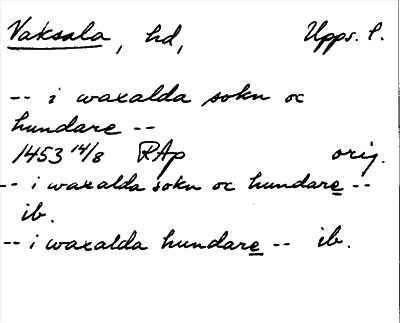 Vaksala, hd, Upps. l.
-- i waxalda sokn oc
hundare --
1453 14/8 RAp orig.
-- i waxalda sokn oc hundare --
ib.
-- i waxalda hundare -- ib.